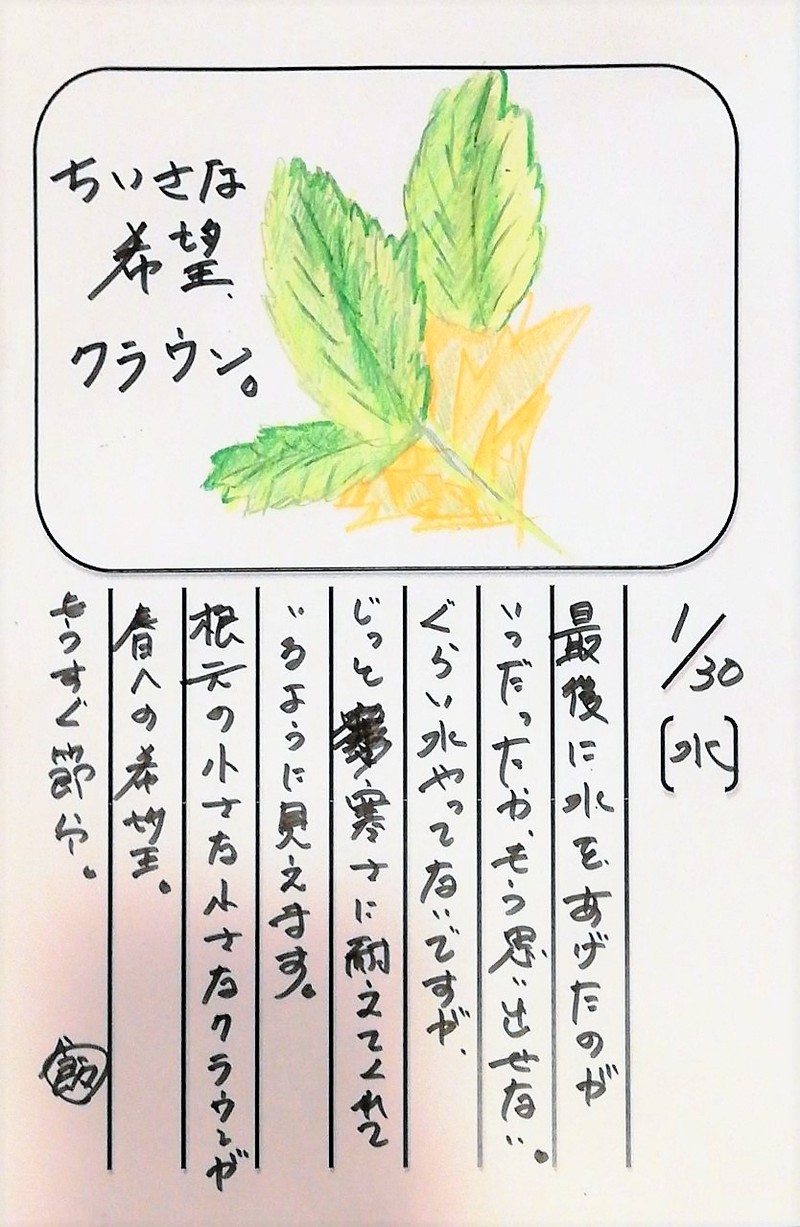 ちいさな
希望、
クラウン。
1/30
[水]
最後に水をあげたのが
いつだったか、もう思い出せない。
ぐらい水やってないですが、
じっと寒さに耐えてくれて
いるように見えます。
根元の小さな小さなクラウンが
春への希望。
もうすぐ節分。
飯